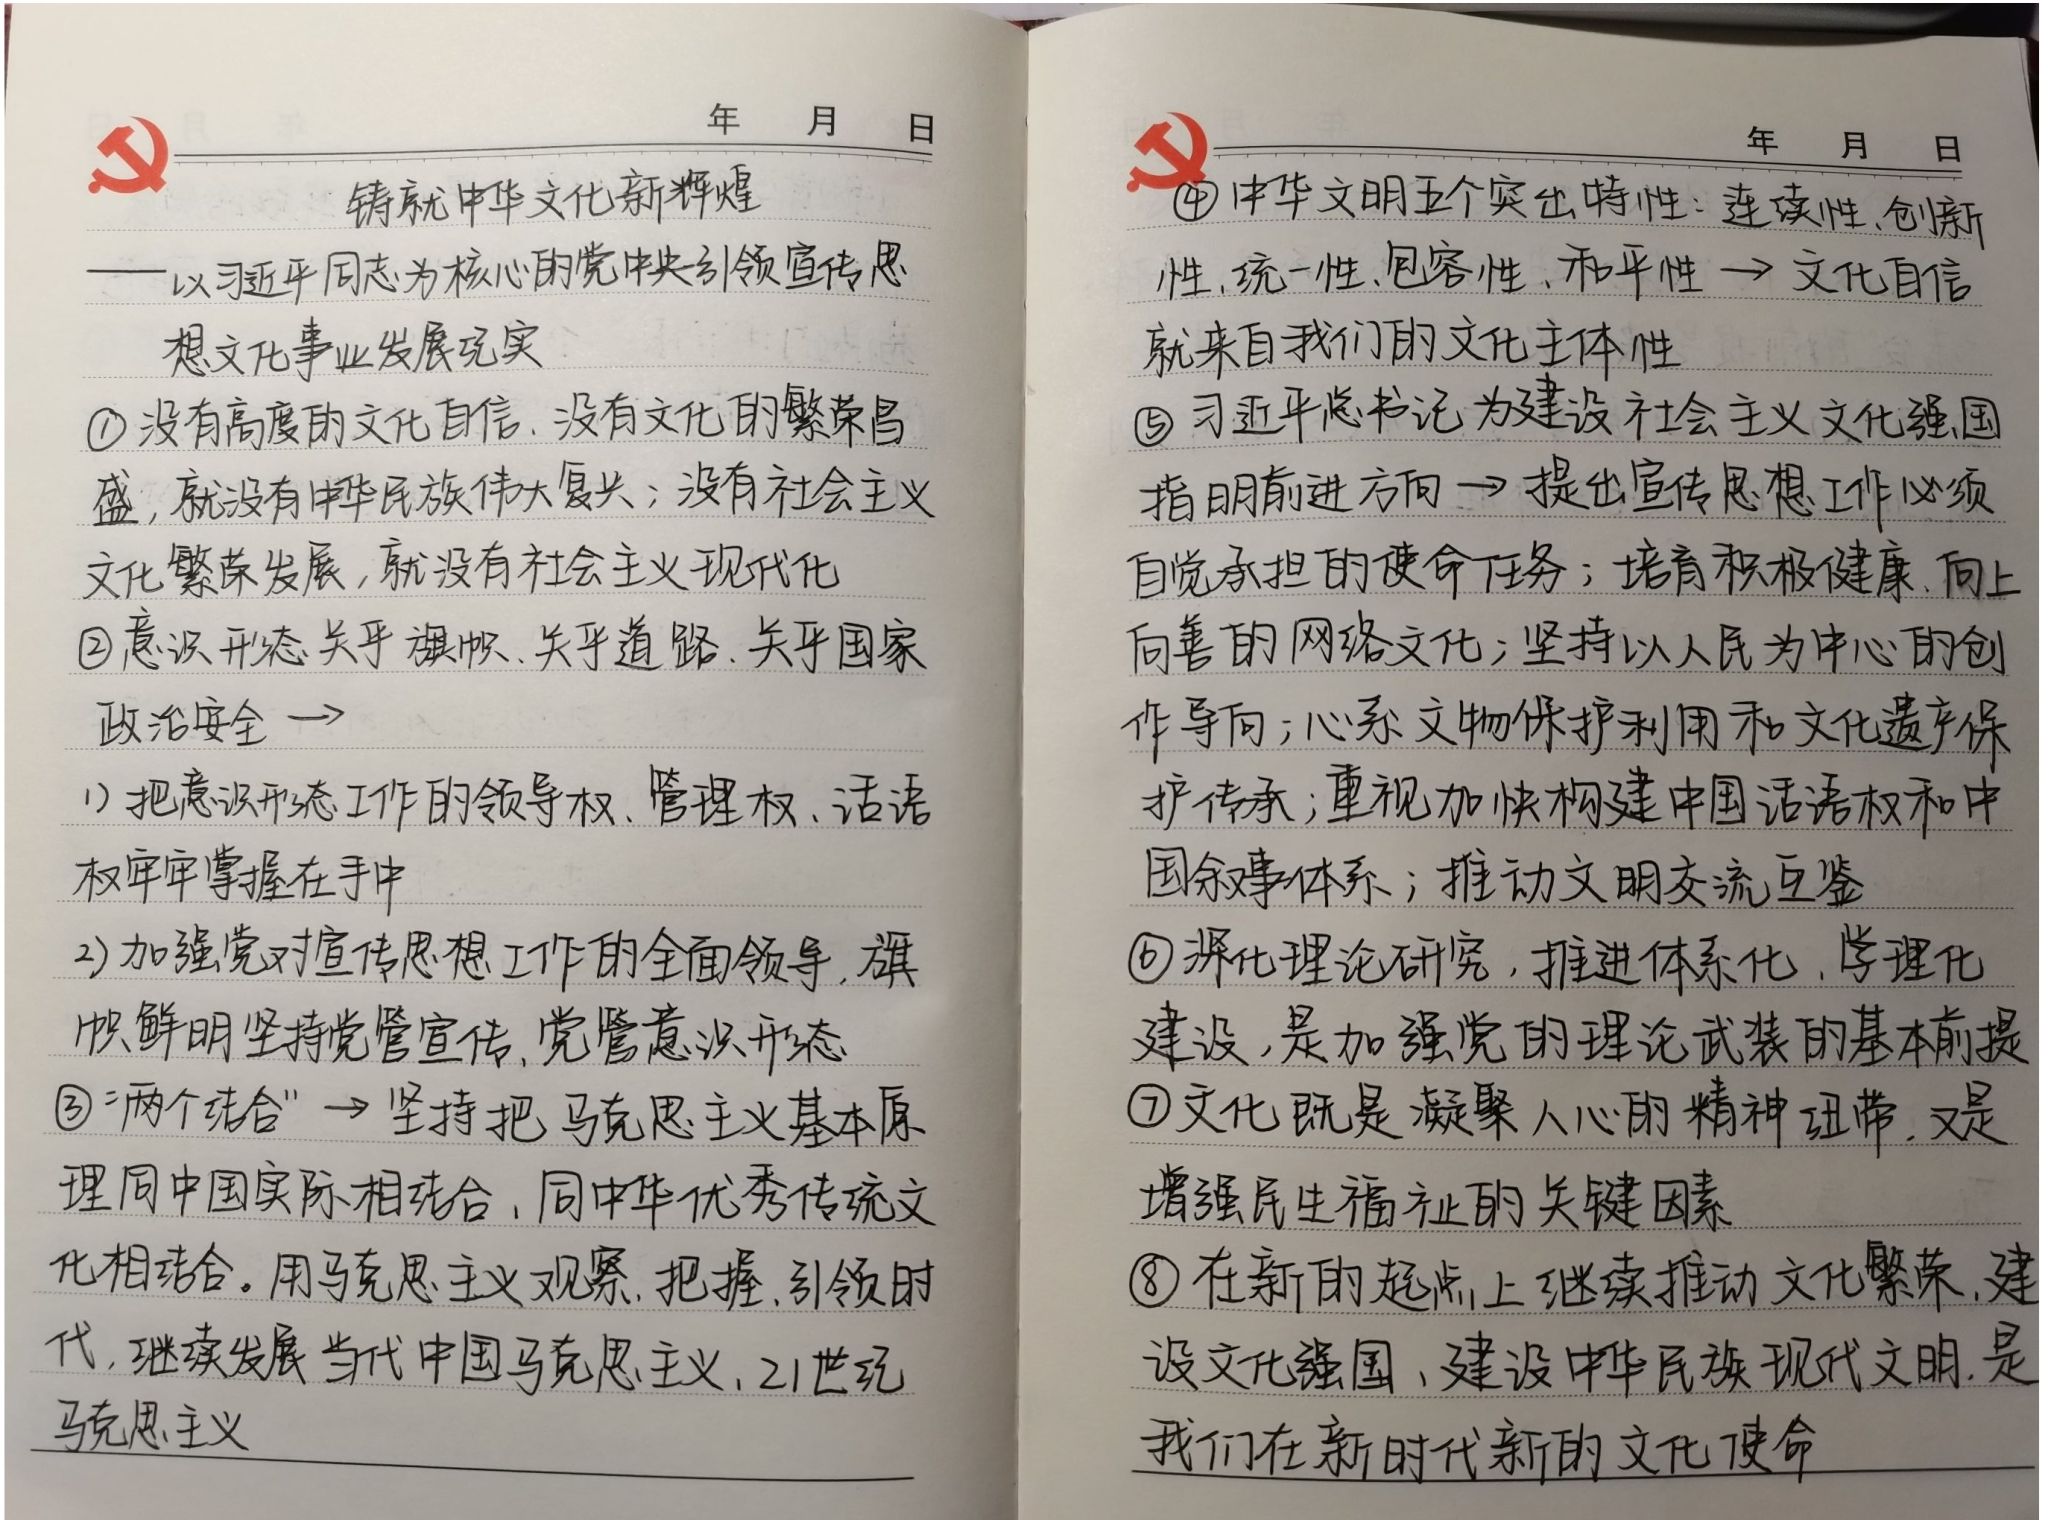 年 月 日
铸就中华文化新辉煌
——以习近平同志为核心的党中央引领宣传思
想文化事业发展纪实
①没有高度的文化自信、没有文化的繁荣昌
盛,就没有中华民族伟大复兴;没有社会主义
文化繁荣发展,就没有社会主义现代化
②意识形态关乎旗帜、关乎道路、关乎国家
政治安全→
1)把意识形态工作的领导权、管理权、话语
权牢牢掌握在手中
2)加强党对宣传思想工作的全面领导,旗
帜鲜明坚持党管宣传、党管意识形态
③“两个结合”→坚持把马克思主义基本原
理同中国实际相结合、同中华优秀传统文
化相结合。用马克思主义观察、把握、引领时
代,继续发展当代中国马克思主义、21世纪
马克思主义
年 月 日
④中华文明五个突出特性:连续性、创新
性、统一性、包容性、和平性→文化自信
就来自我们的文化主体性
⑤习近平总书记为建设社会主义文化强国
指明前进方向→提出宣传思想工作必须
自觉承担的使命任务;培育积极健康、向上
向善的网络文化;坚持以人民为中心的创
作导向;心系文物保护利用和文化遗产保
护传承;重视加快构建中国话语权和中
国叙事体系;推动文明交流互鉴
⑥深化理论研究,推进体系化、学理化
建设,是加强党的理论武装的基本前提
⑦文化既是凝聚人心的精神纽带,又是
增强民生福祉的关键因素
⑧在新的起点上继续推动文化繁荣、建
设文化强国、建设中华民族现代文明,是
我们在新时代新的文化使命